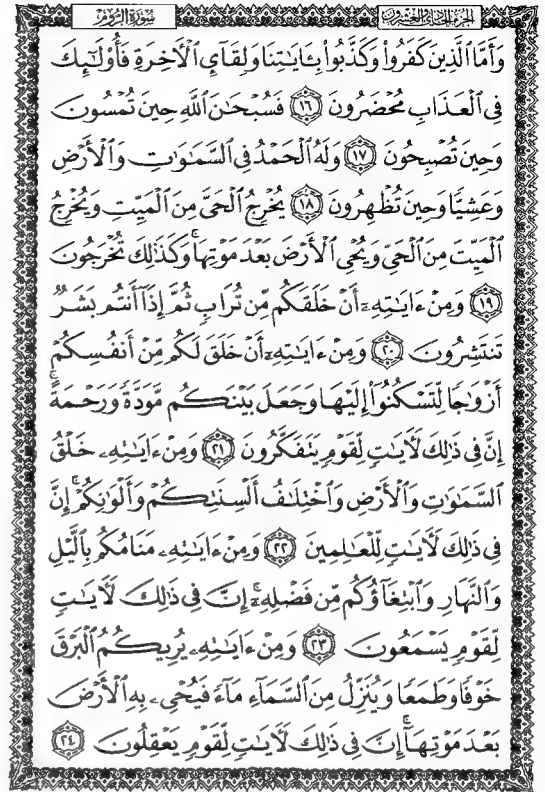 الجزء الحادي والعشرون سورة الروم
وَأَمَّا ٱلَّذِينَ كَفَرُوا۟ وَكَذَّبُوا۟ بِـَٔايَـٰتِنَا وَلِقَآئِ ٱلْأَخِرَةِ فَأُو۟لَـٰٓئِكَ
فِى ٱلْعَذَابِ مُحْضَرُونَ ١٦ فَسُبْحَـٰنَ ٱللَّهِ حِينَ تُمْسُونَ
وَحِينَ تُصْبِحُونَ ١٧ وَلَهُ ٱلْحَمْدُ فِى ٱلسَّمَـٰوَٰتِ وَٱلْأَرْضِ
وَعَشِيًّا وَحِينَ تُظْهِرُونَ ١٨ يُخْرِجُ ٱلْحَىَّ مِنَ ٱلْمَيِّتِ وَيُخْرِجُ
ٱلْمَيِّتَ مِنَ ٱلْحَىِّ وَيُحْىِ ٱلْأَرْضَ بَعْدَ مَوْتِهَا ۚ وَكَذَٰلِكَ تُخْرَجُونَ
١٩ وَمِنْ ءَايَـٰتِهِۦٓ أَنْ خَلَقَكُم مِّن تُرَابٍ ثُمَّ إِذَآ أَنتُم بَشَرٌ
تَنتَشِرُونَ ٢٠ وَمِنْ ءَايَـٰتِهِۦٓ أَنْ خَلَقَ لَكُم مِّنْ أَنفُسِكُمْ
أَزْوَٰجًا لِّتَسْكُنُوٓا۟ إِلَيْهَا وَجَعَلَ بَيْنَكُم مَّوَدَّةً وَرَحْمَةً ۚ
إِنَّ فِى ذَٰلِكَ لَـَٔايَـٰتٍ لِّقَوْمٍ يَتَفَكَّرُونَ ٢١ وَمِنْ ءَايَـٰتِهِۦ خَلْقُ
ٱلسَّمَـٰوَٰتِ وَٱلْأَرْضِ وَٱخْتِلَـٰفُ أَلْسِنَتِكُمْ وَأَلْوَٰنِكُمْ ۚ إِنَّ
فِى ذَٰلِكَ لَـَٔايَـٰتٍ لِّلْعَـٰلِمِينَ ٢٢ وَمِنْ ءَايَـٰتِهِۦ مَنَامُكُم بِٱلَّيْلِ
وَٱلنَّهَارِ وَٱبْتِغَآؤُكُم مِّن فَضْلِهِۦٓ ۚ إِنَّ فِى ذَٰلِكَ لَـَٔايَـٰتٍ
لِّقَوْمٍ يَسْمَعُونَ ٢٣ وَمِنْ ءَايَـٰتِهِۦ يُرِيكُمُ ٱلْبَرْقَ
خَوْفًا وَطَمَعًا وَيُنَزِّلُ مِنَ ٱلسَّمَآءِ مَآءً فَيُحْىِۦ بِهِ ٱلْأَرْضَ
بَعْدَ مَوْتِهَآ ۚ إِنَّ فِى ذَٰلِكَ لَـَٔايَـٰتٍ لِّقَوْمٍ يَعْقِلُونَ ٢٤